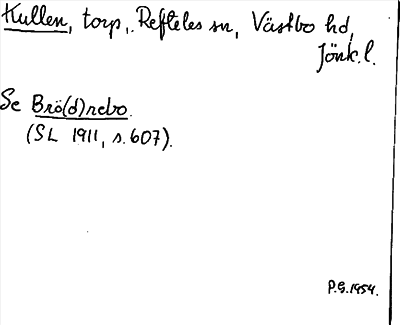 Kullen, torp, Refteles sn, Västbo hd,
Jönk.l.
Se Brö(d)rebo.
(SL 1911, s.607).
P.G.1954.